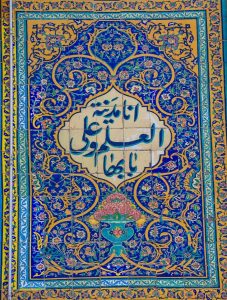 انا مدینة
العلم و علی
بابها